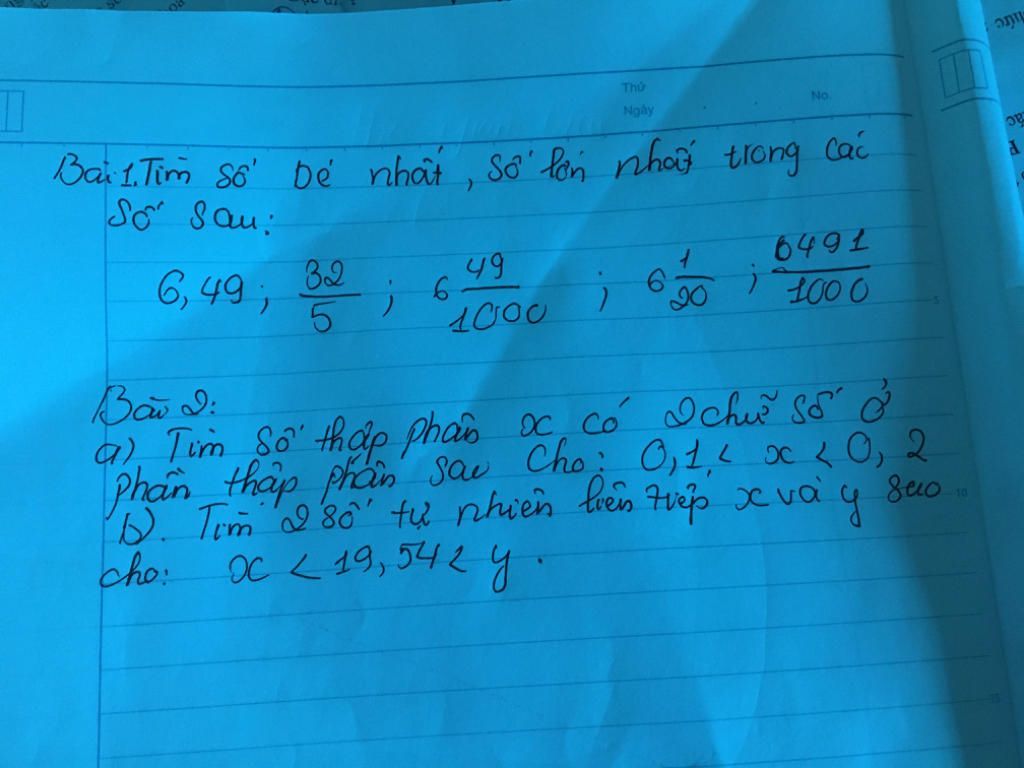 Thứ
Ngày . . No.
Bài 1. Tìm số bé nhất, số lớn nhất trong các
số sau:
6,49; 32/5; 6 49/1000; 6 1/20; 6491/1000
Bài 2:
a) Tìm số thập phân x có 2 chữ số ở
phần thập phân sao cho: 0,1 < x < 0,2
b). Tìm 2 số tự nhiên liên tiếp x và y sao
cho: x < 19,54 < y.
5
10
15